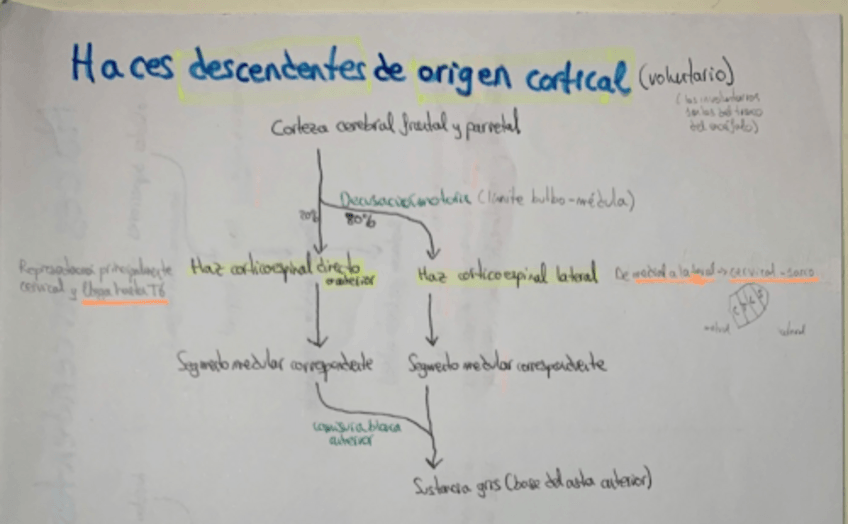 Haces descendentes de origen cortical (voluntario)
(las involuntarios
son las del tronco
del encéfalo)
Corteza cerebral frontal y parietal
Decusación motora (límite bulbo-médula)
20%
80%
Representación principalmente
cervical y llega hasta T6
Haz corticoespinal directo
o anterior
Haz corticoespinal lateral
De medial a lateral → cervical-sacro
C T L S
medial lateral
Segmento medular correspondiente
Segmento medular correspondiente
comisura blanca
anterior
Sustancia gris (base del asta anterior)